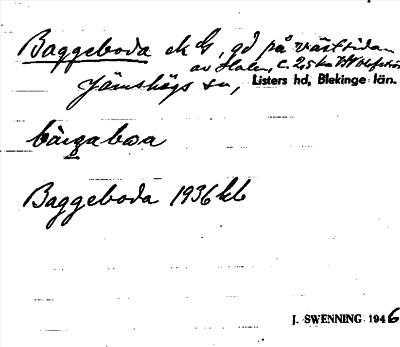 Baggeboda ek G, gd på västsidan
av Halen, c. 2,5 km
Jämshögs sn, Listers hd, Blekinge län.
bàgabωa
Baggeboda 1936 kb
J. SWENNING 1946